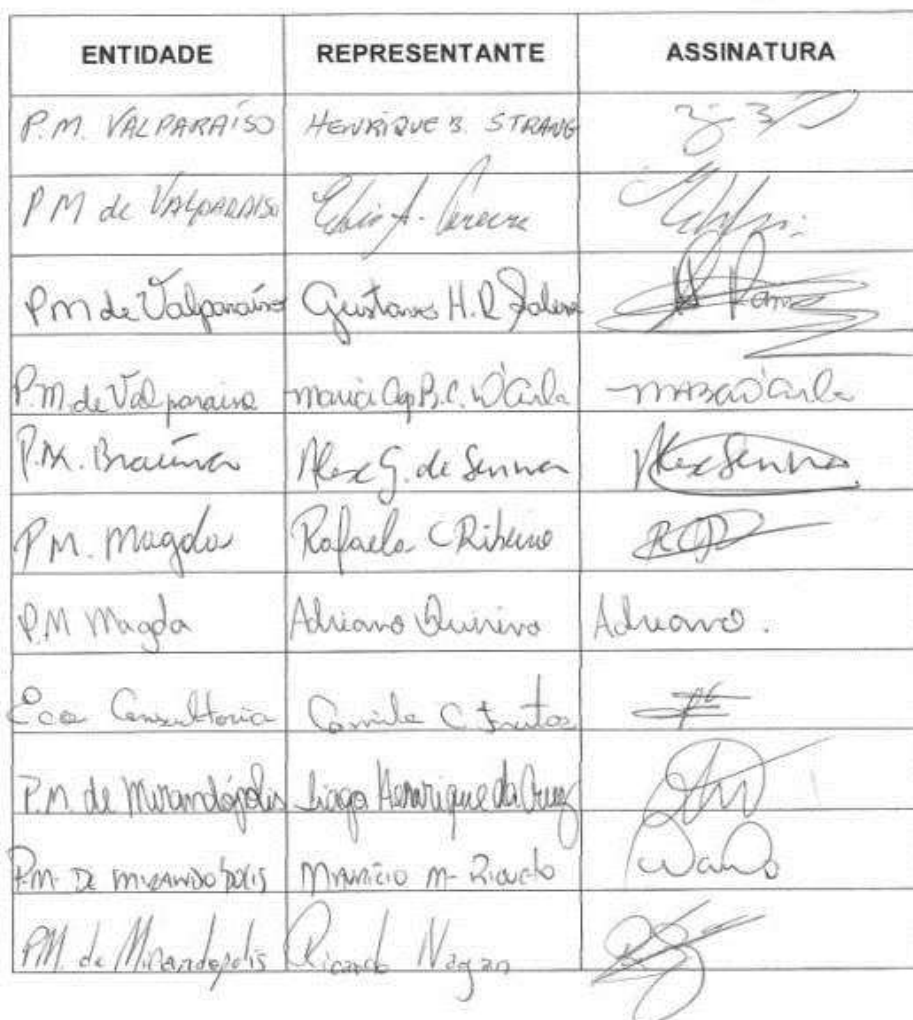 ENTIDADE REPRESENTANTE ASSINATURA
P.M. VALPARAÍSO HENRIQUE B. STRANG
PM de VALPARAISO A. Pereira
PM de Valparaíso Gustavo H. R.
P.M. de Valparaiso Maria Ap. B. C. D'Carla
P.M. Braúna Alex G. de Senna Alex Senna
P.M. Magda Rafaela C Ribeiro
P.M Magda Adriano Quirino Adriano.
Eco Consultoria Camila C. Freitas
P.M. de Mirandópolis Tiago Henrique da Cruz
P.M. DE MIRANDOPOLIS MAURÍCIO M.
PM. de Mirandopolis Ricardo Nagan